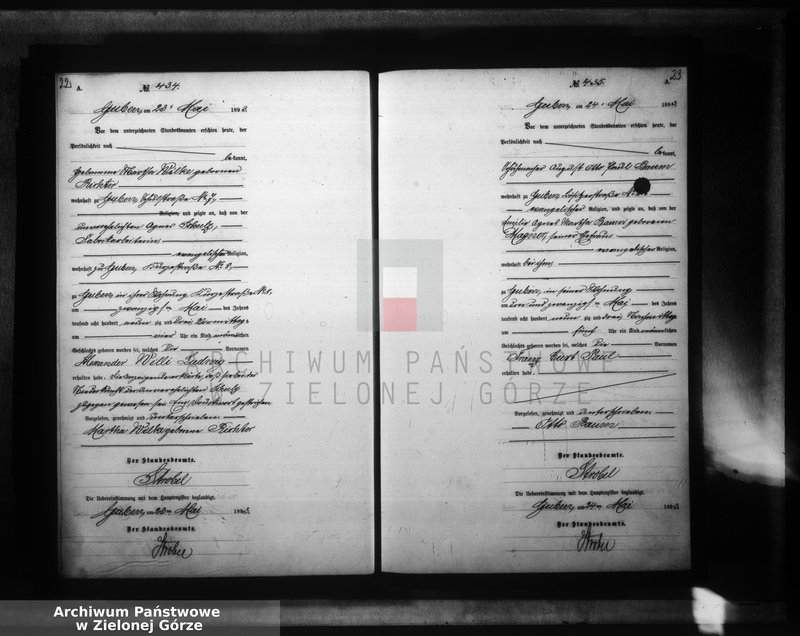 22.
A.
№ 434.
Guben, am 23. Mai 1893.
Vor dem unterzeichneten Standesbeamten erschien heute, der
Persönlichkeit nach
bekannt,
Hebamme Martha Wilke geborene
Richter
wohnhaft zu Guben,
Religion, und zeigte an, daß von der
unverehelichten Agnes Schulz,
Fabrikarbeiterin,
evangelischer Religion,
wohnhaft zu Guben, Kurzestraße № 8,
zu Guben in ihrer Wohnung Kurzestraße № 8,
am zwanzigsten Mai des Jahres
tausend acht hundert neunzig und drei Vormittags
um vier Uhr ein Kind männlichen
Geschlechts geboren worden sei, welches die Vornamen
Alexander Willi Ludwig
erhalten habe.
Niederkunft der unverehelichten Schulz
zugegen gewesen sei.
Vorgelesen, genehmigt und unterschrieben
Martha Wilke geborene Richter
Der Standesbeamte.
Strobel
Die Uebereinstimmung mit dem Hauptregister beglaubigt.
Guben, am 23ten Mai 1893.
Der Standesbeamte.
Strobel
23
A.
№ 435.
Guben, am 24. Mai 1893
Vor dem unterzeichneten Standesbeamten erschien heute, der
Persönlichkeit nach
bekannt,
Schuhmacher August Otto Paul Baum
wohnhaft zu Guben,
evangelischer Religion, und zeigte an, daß von der
Emilie Agnes Martha Baum geborenen
Wagner, seiner Ehefrau
evangelischer Religion,
wohnhaft bei ihm,
zu Guben, in seiner Wohnung
am drei und zwanzigsten Mai des Jahres
tausend acht hundert neunzig und drei Nachmittags
um fünf Uhr ein Kind männlichen
Geschlechts geboren worden sei, welches die Vornamen
Franz Curt Paul
erhalten habe.
Vorgelesen, genehmigt und unterschrieben
Otto Baum
Der Standesbeamte.
Strobel
Die Uebereinstimmung mit dem Hauptregister beglaubigt.
Guben, am 24ten Mai 1893
Der Standesbeamte.
Strobel
ARCHIWUM PAŃSTWOWE
W ZIELONEJ GÓRZE
Archiwum Państwowe
w Zielonej Górze